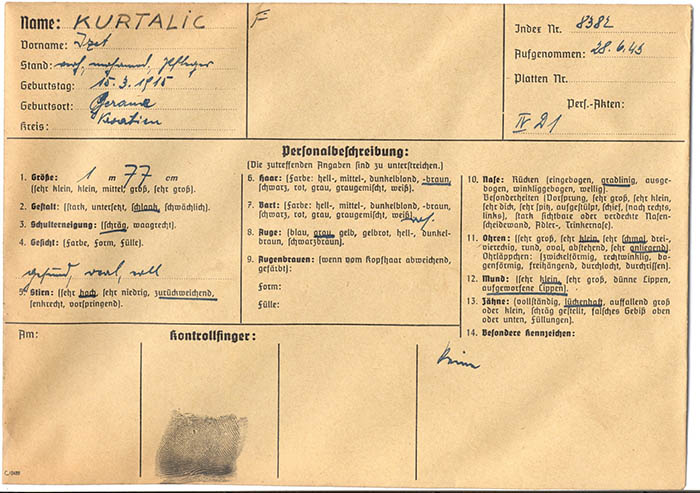 Name: KURTALIC
Vorname: Izet
Stand:
Geburtstag: 15.3.1915
Geburtsort:
Kreis: Kroatien
F
Index Nr. 8382
Aufgenommen: 28.6.43
Platten Nr.
Pers.-Akten:
IV 21
Personalbeschreibung:
(Die zutreffenden Angaben sind zu unterstreichen.)
1. Größe: 1 m 77 cm
(sehr klein, klein, mittel, groß, sehr groß).
2. Gestalt: (stark, untersetzt, schlank, schwächlich).
3. Schulterneigung: (schräg, waagrecht).
4. Gesicht: (Farbe, Form, Fülle).
gesund, oval, voll
5. Stirn: (sehr hoch, sehr niedrig, zurückweichend,
senkrecht, vorspringend).
6. Haar: (Farbe: hell-, mittel-, dunkelblond, -braun,
schwarz, rot, grau, graugemischt, weiß).
7. Bart: (Farbe: hell-, mittel-, dunkelblond, -braun,
schwarz, rot, grau, graugemischt, weiß).
8. Auge: (blau, grau, gelb, gelbrot, hell-, dunkel-
braun, schwarzbraun).
9. Augenbrauen: (wenn vom Kopfhaar abweichend,
gefärbt):
Form:
Fülle:
10. Nase: Rücken (eingebogen, gradlinig, ausge-
bogen, winkliggebogen, wellig).
Besonderheiten (Vorsprung, sehr groß, sehr klein,
sehr dick, sehr spitz, aufgestülpt, schief, (nach rechts,
links), stark sichtbare oder verdeckte Nasen-
scheidewand, Adler-, Trinkernase).
11. Ohren: (sehr groß, sehr klein, sehr schmal, drei-,
viereckig, rund, oval, abstehend, sehr anliegend).
Ohrläppchen: (zwickelförmig, rechtwinklig, bo-
genförmig, freihängend, durchlocht, durchrissen).
12. Mund: (sehr klein, sehr groß, dünne Lippen,
aufgeworfene Lippen).
13. Zähne: (vollständig, lückenhaft, auffallend groß
oder klein, schräg gestellt, falsches Gebiß oben
oder unten, Füllungen).
14. Besondere Kennzeichen:
keine
Am:
Kontrollfinger: